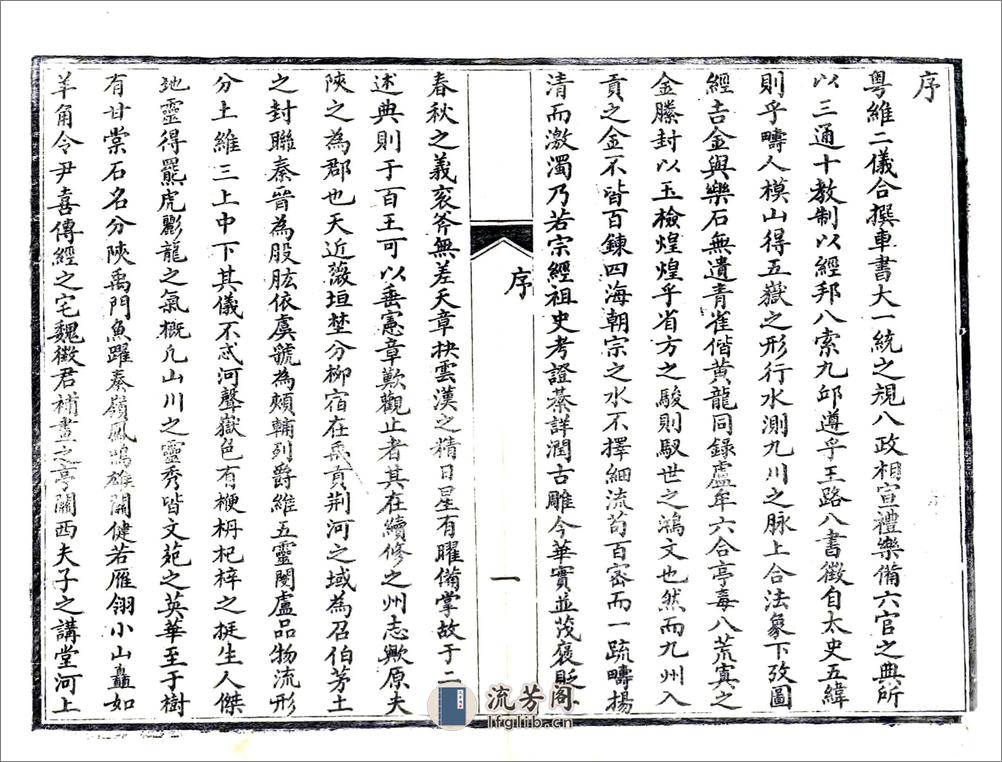 序
粤維二儀合撰車書大一統之規八政相宣禮樂備六官之典所
以三通十教制以經邦八索九邱遵乎王路八書徵自太史五緯
則乎疇人模山得五嶽之形行水測九川之脉上合法象下攷圖
經吉金與樂石無遺青雀偕黄龍同錄盧牟六合亭毒八荒寘之
金縢封以玉檢煌煌乎省方之駿則馭世之鴻文也然而九州入
貢之金不皆百鍊四海朝宗之水不擇細流苟百密而一疏疇揚
清而激濁乃若宗經祖史考證綦詳潤古雕今華實並茂褒貶
春秋之義衮斧無差天章抉雲漢之精日星有曜備掌故于二
述典則于百王可以垂憲章歎觀止者其在續修之州志歟原夫
陜之為郡也天近薇垣埜分柳宿在禹貢荆河之域為召伯茅土
之封聯秦晉為股肱依虞虢為頰輔列爵維五靈閿盧品物流形
分土維三上中下其儀不忒河聲嶽色有楩枬杞梓之挺生人傑
地靈得羆虎彲龍之氣概凢山川之靈秀皆文苑之英華至于樹
有甘棠石名分陜禹門魚躍秦嶺鳳鳴雄關健若雁翎小山矗如
羊角令尹喜傳經之宅魏徵君補畫之亭關西夫子之講堂河上
序
一
流芳閣
lfglib.cn